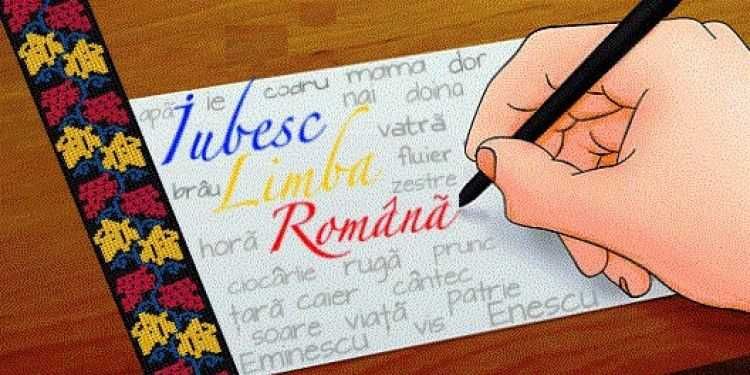 apă ie codru mama dor
nai doina
Iubesc vatră
Limba fluier
brâu zestre
Română
horă
ciocârlie rugă prunc
țară caier cântec
soare viață vis patrie
Eminescu Enescu